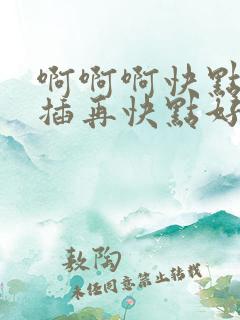 啊啊啊快點
插再快點好
敖陶
未经同意禁止转载